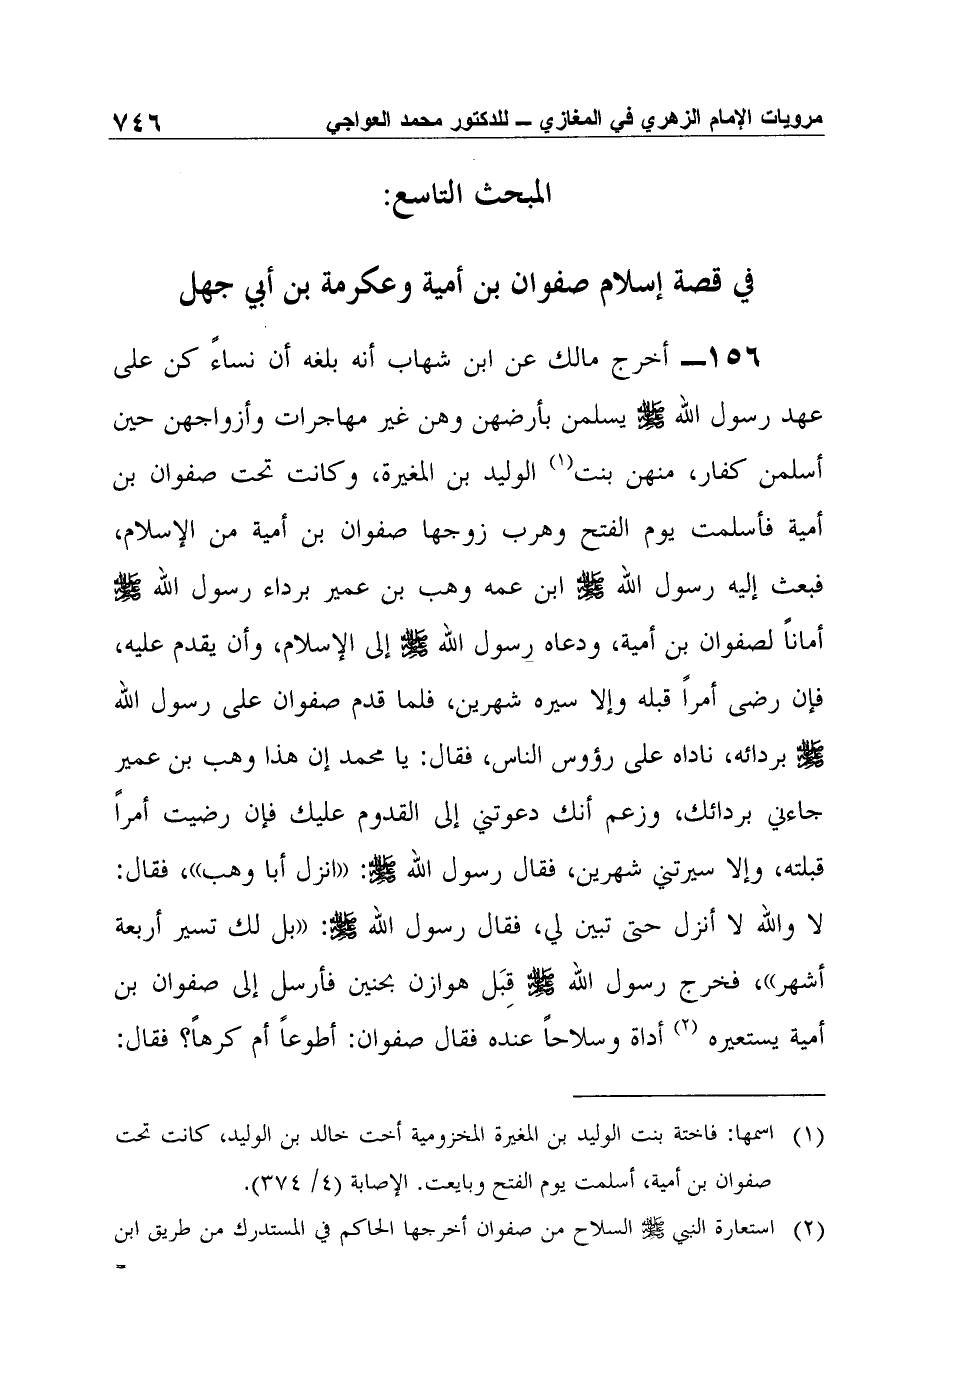 مرويات الإمام الزهري في المغازي ــ للدكتور محمد العواجي ٧٤٦
المبحث التاسع:
في قصة إسلام صفوان بن أمية وعكرمة بن أبي جهل
١٥٦ــ أخرج مالك عن ابن شهاب أنه بلغه أن نساءً كن على
عهد رسول الله ﷺ يسلمن بأرضهن وهن غير مهاجرات وأزواجهن حين
أسلمن كفار، منهن بنت(١) الوليد بن المغيرة، وكانت تحت صفوان بن
أمية فأسلمت يوم الفتح وهرب زوجها صفوان بن أمية من الإسلام،
فبعث إليه رسول الله ﷺ ابن عمه وهب بن عمير برداء رسول الله ﷺ
أماناً لصفوان بن أمية، ودعاه رسول الله ﷺ إلى الإسلام، وأن يقدم عليه،
فإن رضى أمراً قبله وإلا سيره شهرين، فلما قدم صفوان على رسول الله
ﷺ بردائه، ناداه على رؤوس الناس، فقال: يا محمد إن هذا وهب بن عمير
جاءني بردائك، وزعم أنك دعوتني إلى القدوم عليك فإن رضيت أمراً
قبلته، وإلا سيرتني شهرين، فقال رسول الله ﷺ: «انزل أبا وهب»، فقال:
لا والله لا أنزل حتى تبين لي، فقال رسول الله ﷺ: «بل لك تسير أربعة
أشهر»، فخرج رسول الله ﷺ قِبَل هوازن بحنين فأرسل إلى صفوان بن
أمية يستعيره (٢) أداة وسلاحاً عنده فقال صفوان: أطوعاً أم كرهاً؟ فقال:
(١) اسمها: فاختة بنت الوليد بن المغيرة المخزومية أخت خالد بن الوليد، كانت تحت
صفوان بن أمية، أسلمت يوم الفتح وبايعت. الإصابة (٤/ ٣٧٤).
(٢) استعارة النبي ﷺ السلاح من صفوان أخرجها الحاكم في المستدرك من طريق ابن
=